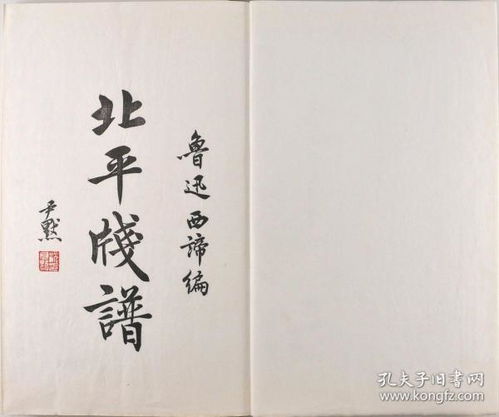 魯迅西諦編
北平牋譜
尹默
孔夫子旧书网
www.kongfz.com